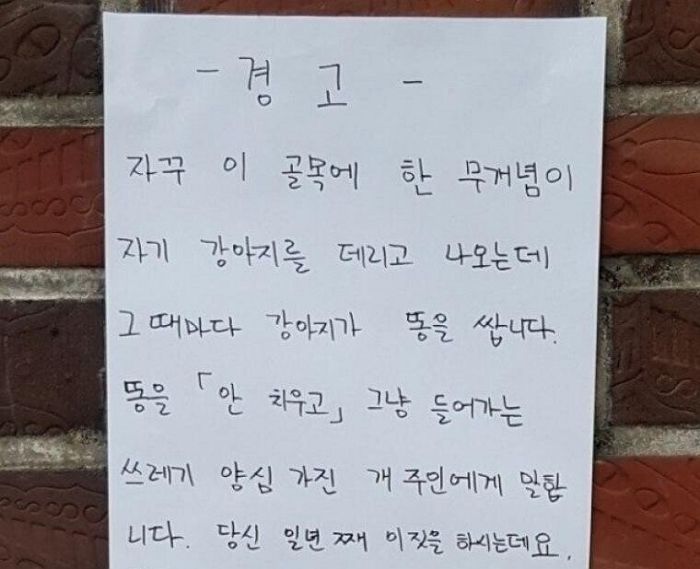 - 경 고 -
자꾸 이 골목에 한 무개념이
자기 강아지를 데리고 나오는데
그때마다 강아지가 똥을 쌉니다.
똥을 「안 치우고」 그냥 들어가는
쓰레기 양심 가진 개주인에게 말합
니다. 당신 일년 째 이짓을 하시는데요.